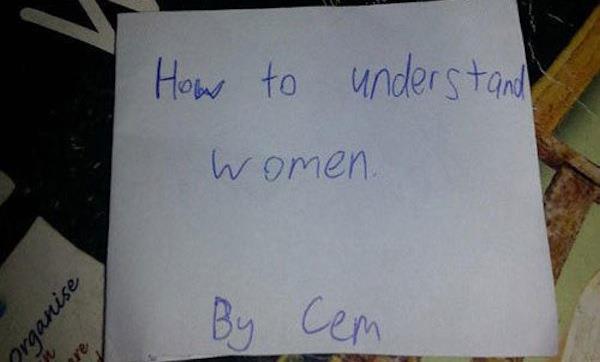 How to understand
women.
By Cem
organise